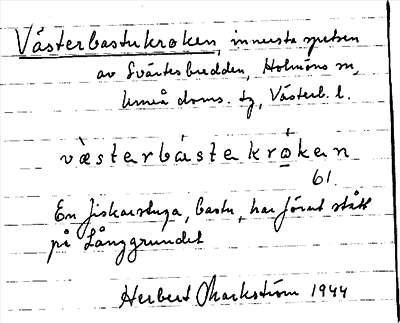 Västerbastukroken, innersta spetsen
av Svärtesbredden, Holmöns sn,
Umeå doms. tg, Västerb. l.
vä̀starbástakrǿ̣kan
61.
En fiskarstuga, bastu, har förut stått
på Långgrundet
Herbert Markström 1944